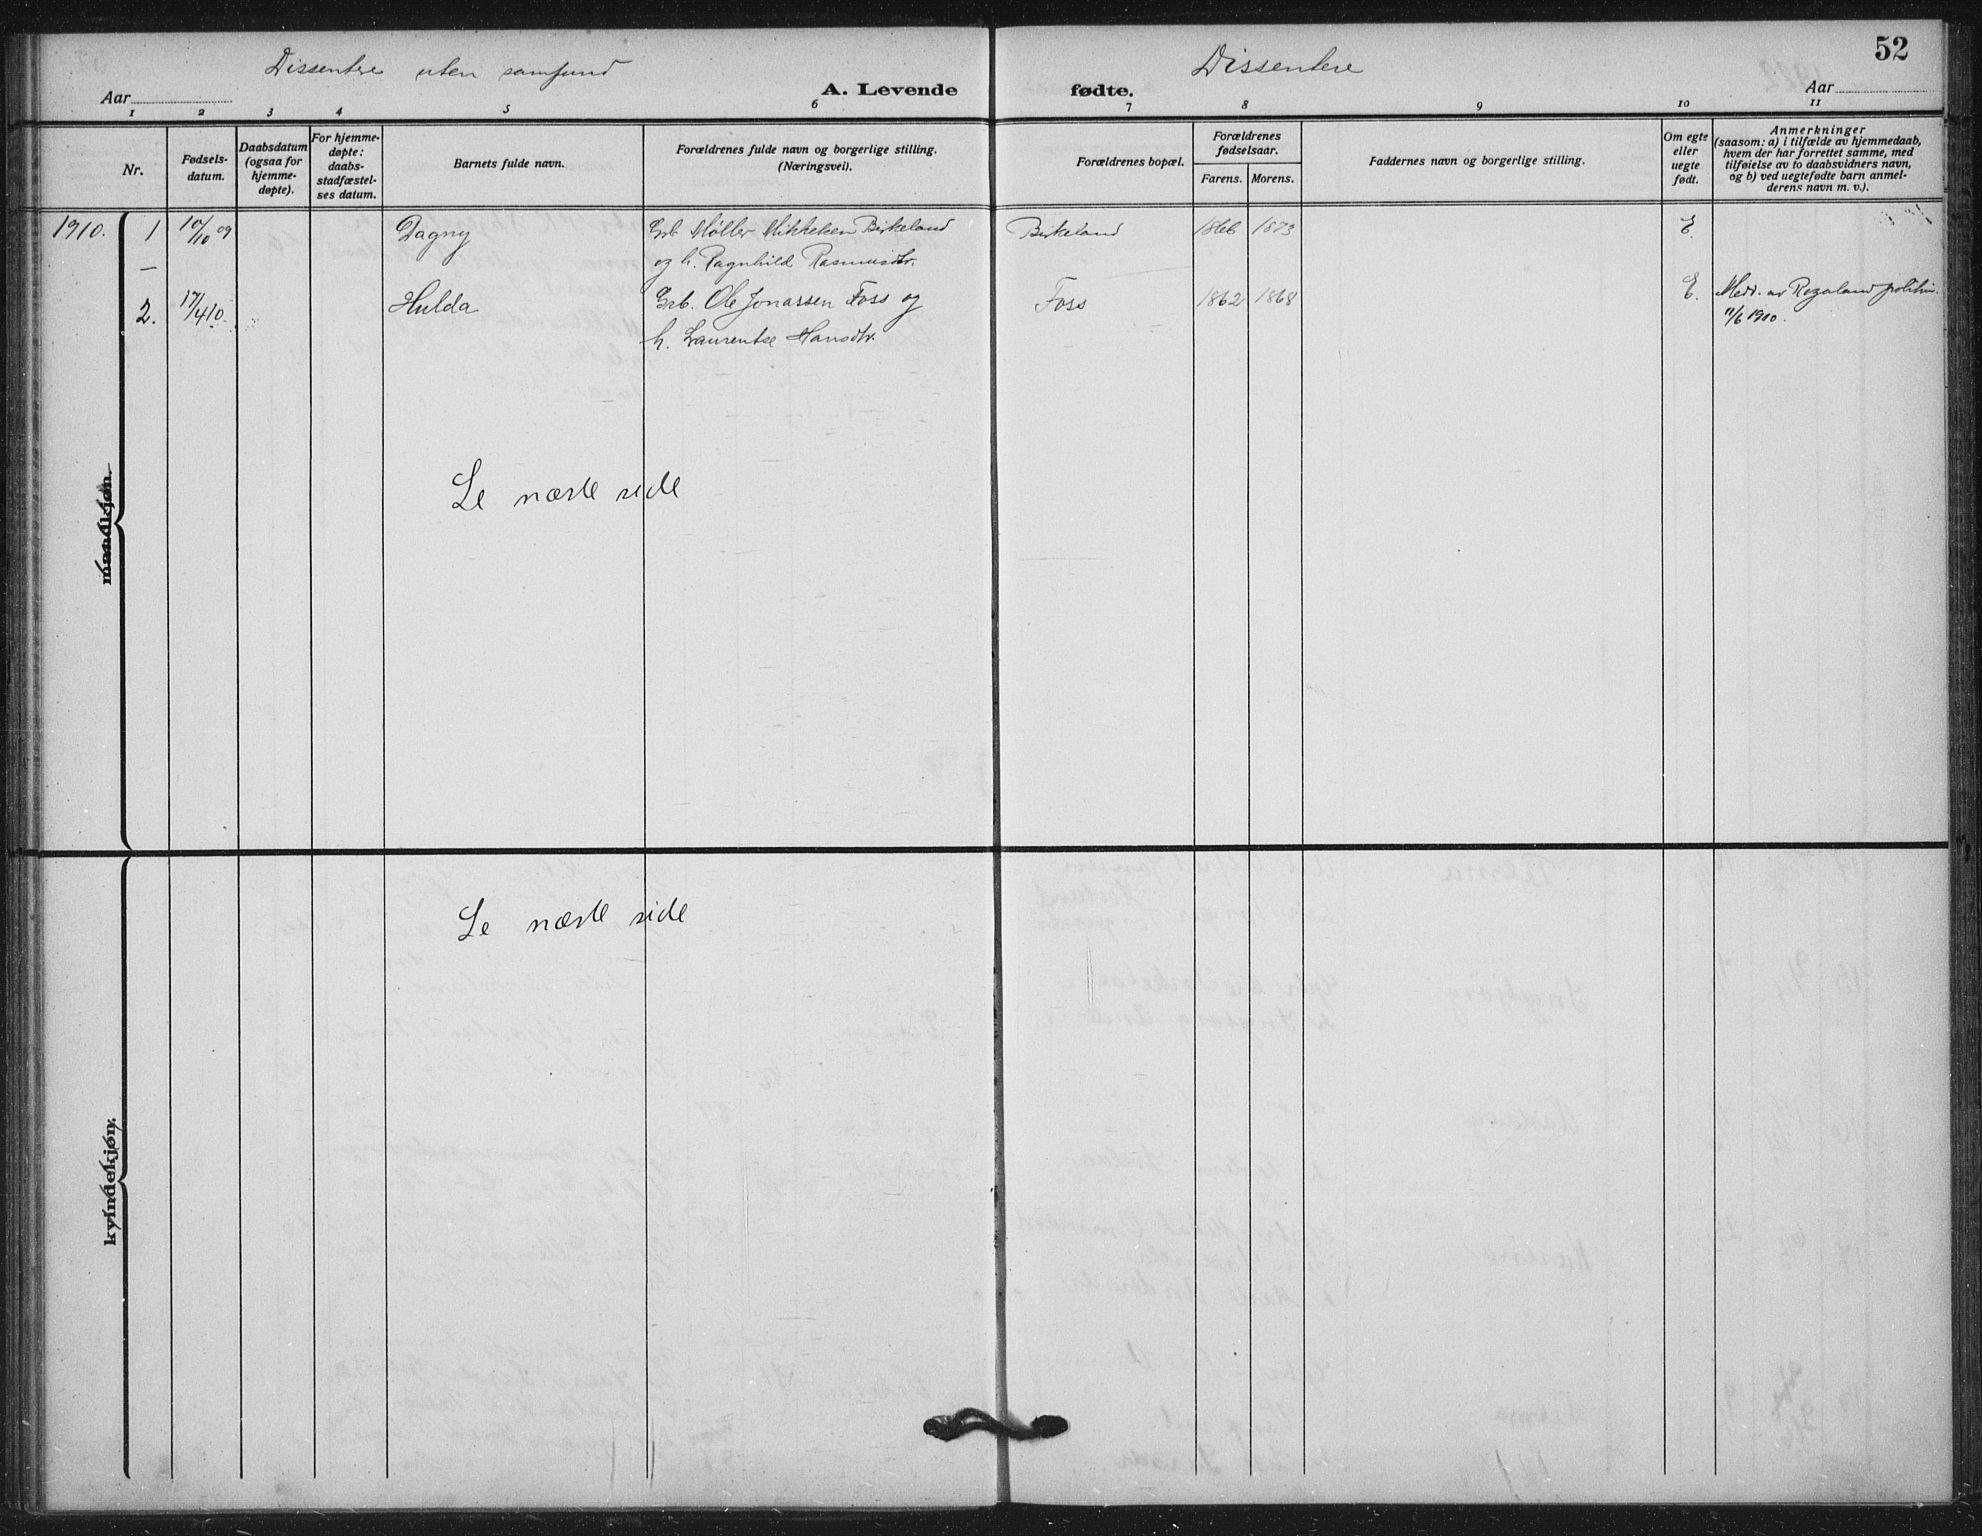 52
Dissentere uten samfund
Dissentere
Aar
A. Levende
fødte.
Aar
1 2 3 4 5 6 7 8 9 10 11
Nr.
Fødsels-
datum.
Daabsdatum
(ogsaa for
hjemme-
døpte).
For hjemme-
døpte:
daabs-
stadfæstel-
ses datum.
Barnets fulde navn.
Forældrenes fulde navn og borgerlige stilling.
(Næringsvei).
Forældrenes bopæl.
Forældrenes
fødselsaar.
Farens. Morens.
Faddernes navn og borgerlige stilling.
Om egte
eller
uegte
født.
Anmerkninger
(saasom: a) i tilfælde av hjemmedaab,
hvem der har forrettet samme, med
tilføielse av to daabsvidners navn,
og b) ved uegtefødte barn anmel-
derens navn m. v.).
1910. 1 10/10 09 Dagny Grb. Møller Mikkelsen Birkeland Birkeland 1866 1873 E.
og h. Ragnhild Rasmusdtr.
2. 17/4 10. Hulda Grb. Ole Jonassen Foss og Foss 1862 1868 E. Medd. av Rogaland politim.
h. Laurentse Hansdtr. 11/6 1910.
mandkjøn.
Se næste side
kvindekjøn.
Se næste side